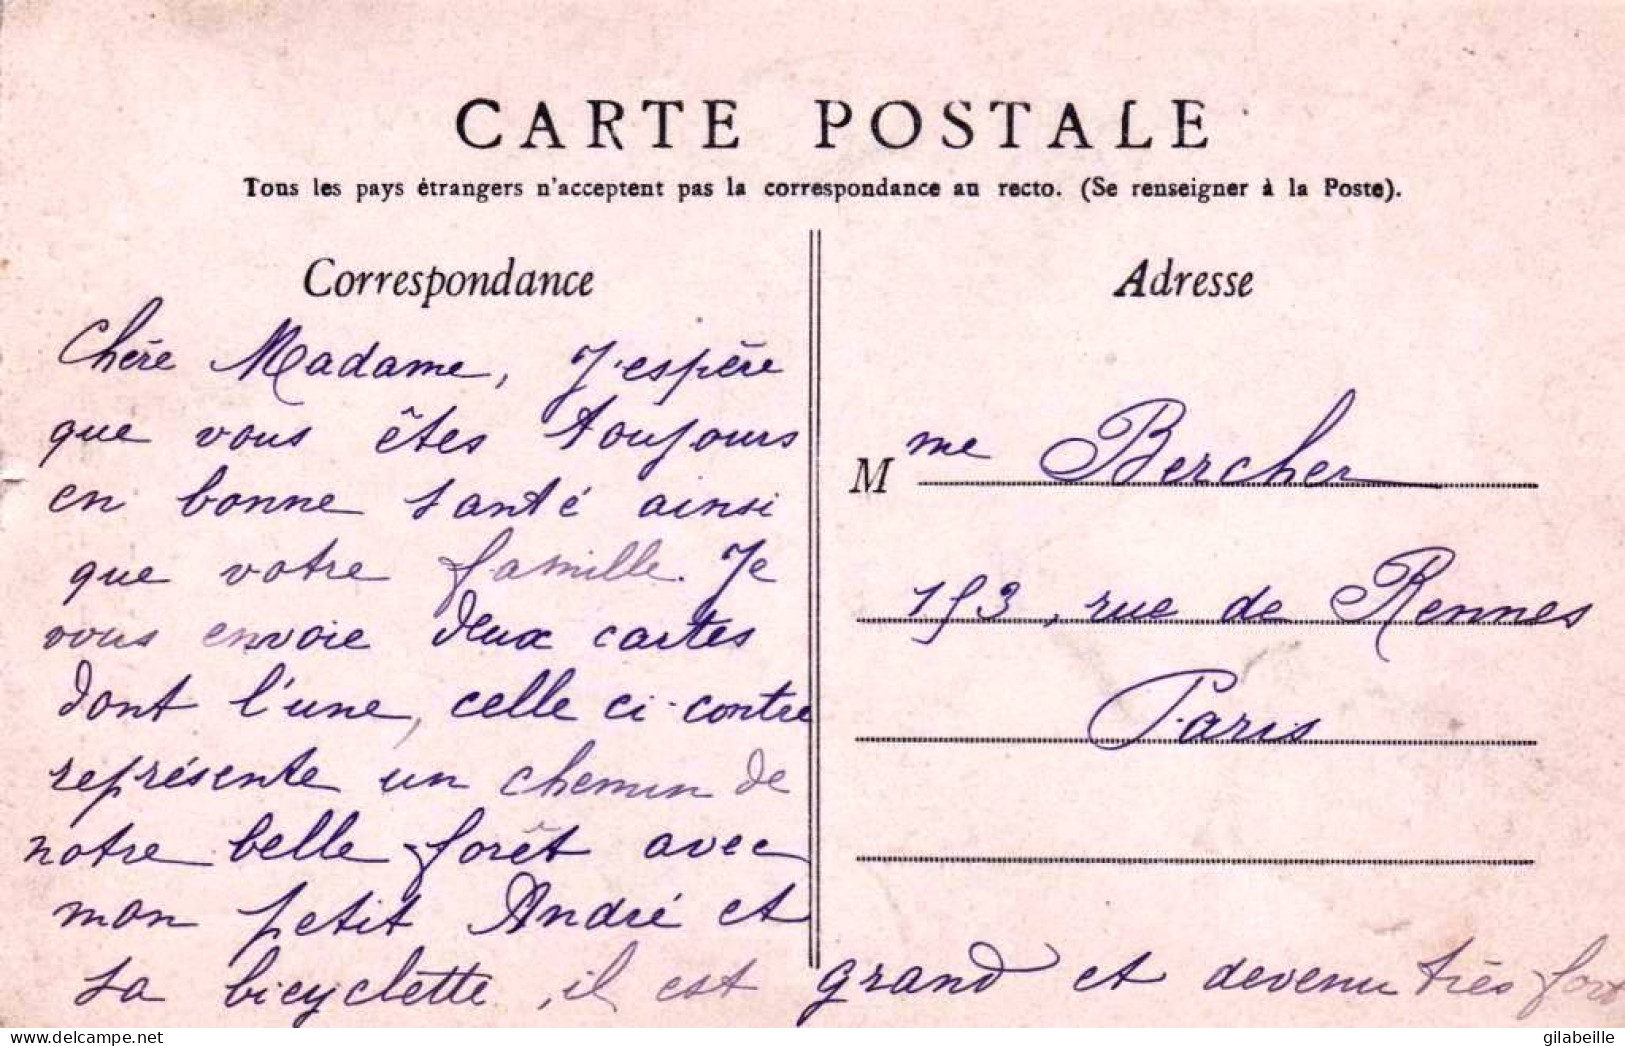 CARTE POSTALE
Tous les pays étrangers n'acceptent pas la correspondance au recto. (Se renseigner à la Poste).
Correspondance
Chère Madame, J'espère
que vous êtes toujours
en bonne santé ainsi
que votre famille. Je
vous envoie deux cartes
dont l'une, celle ci-contre
représente un chemin de
notre belle forêt avec
mon petit André et
sa bicyclette, il est grand et devenu très fort
Adresse
Mme Bercher
153, rue de Rennes
Paris
gilabeille